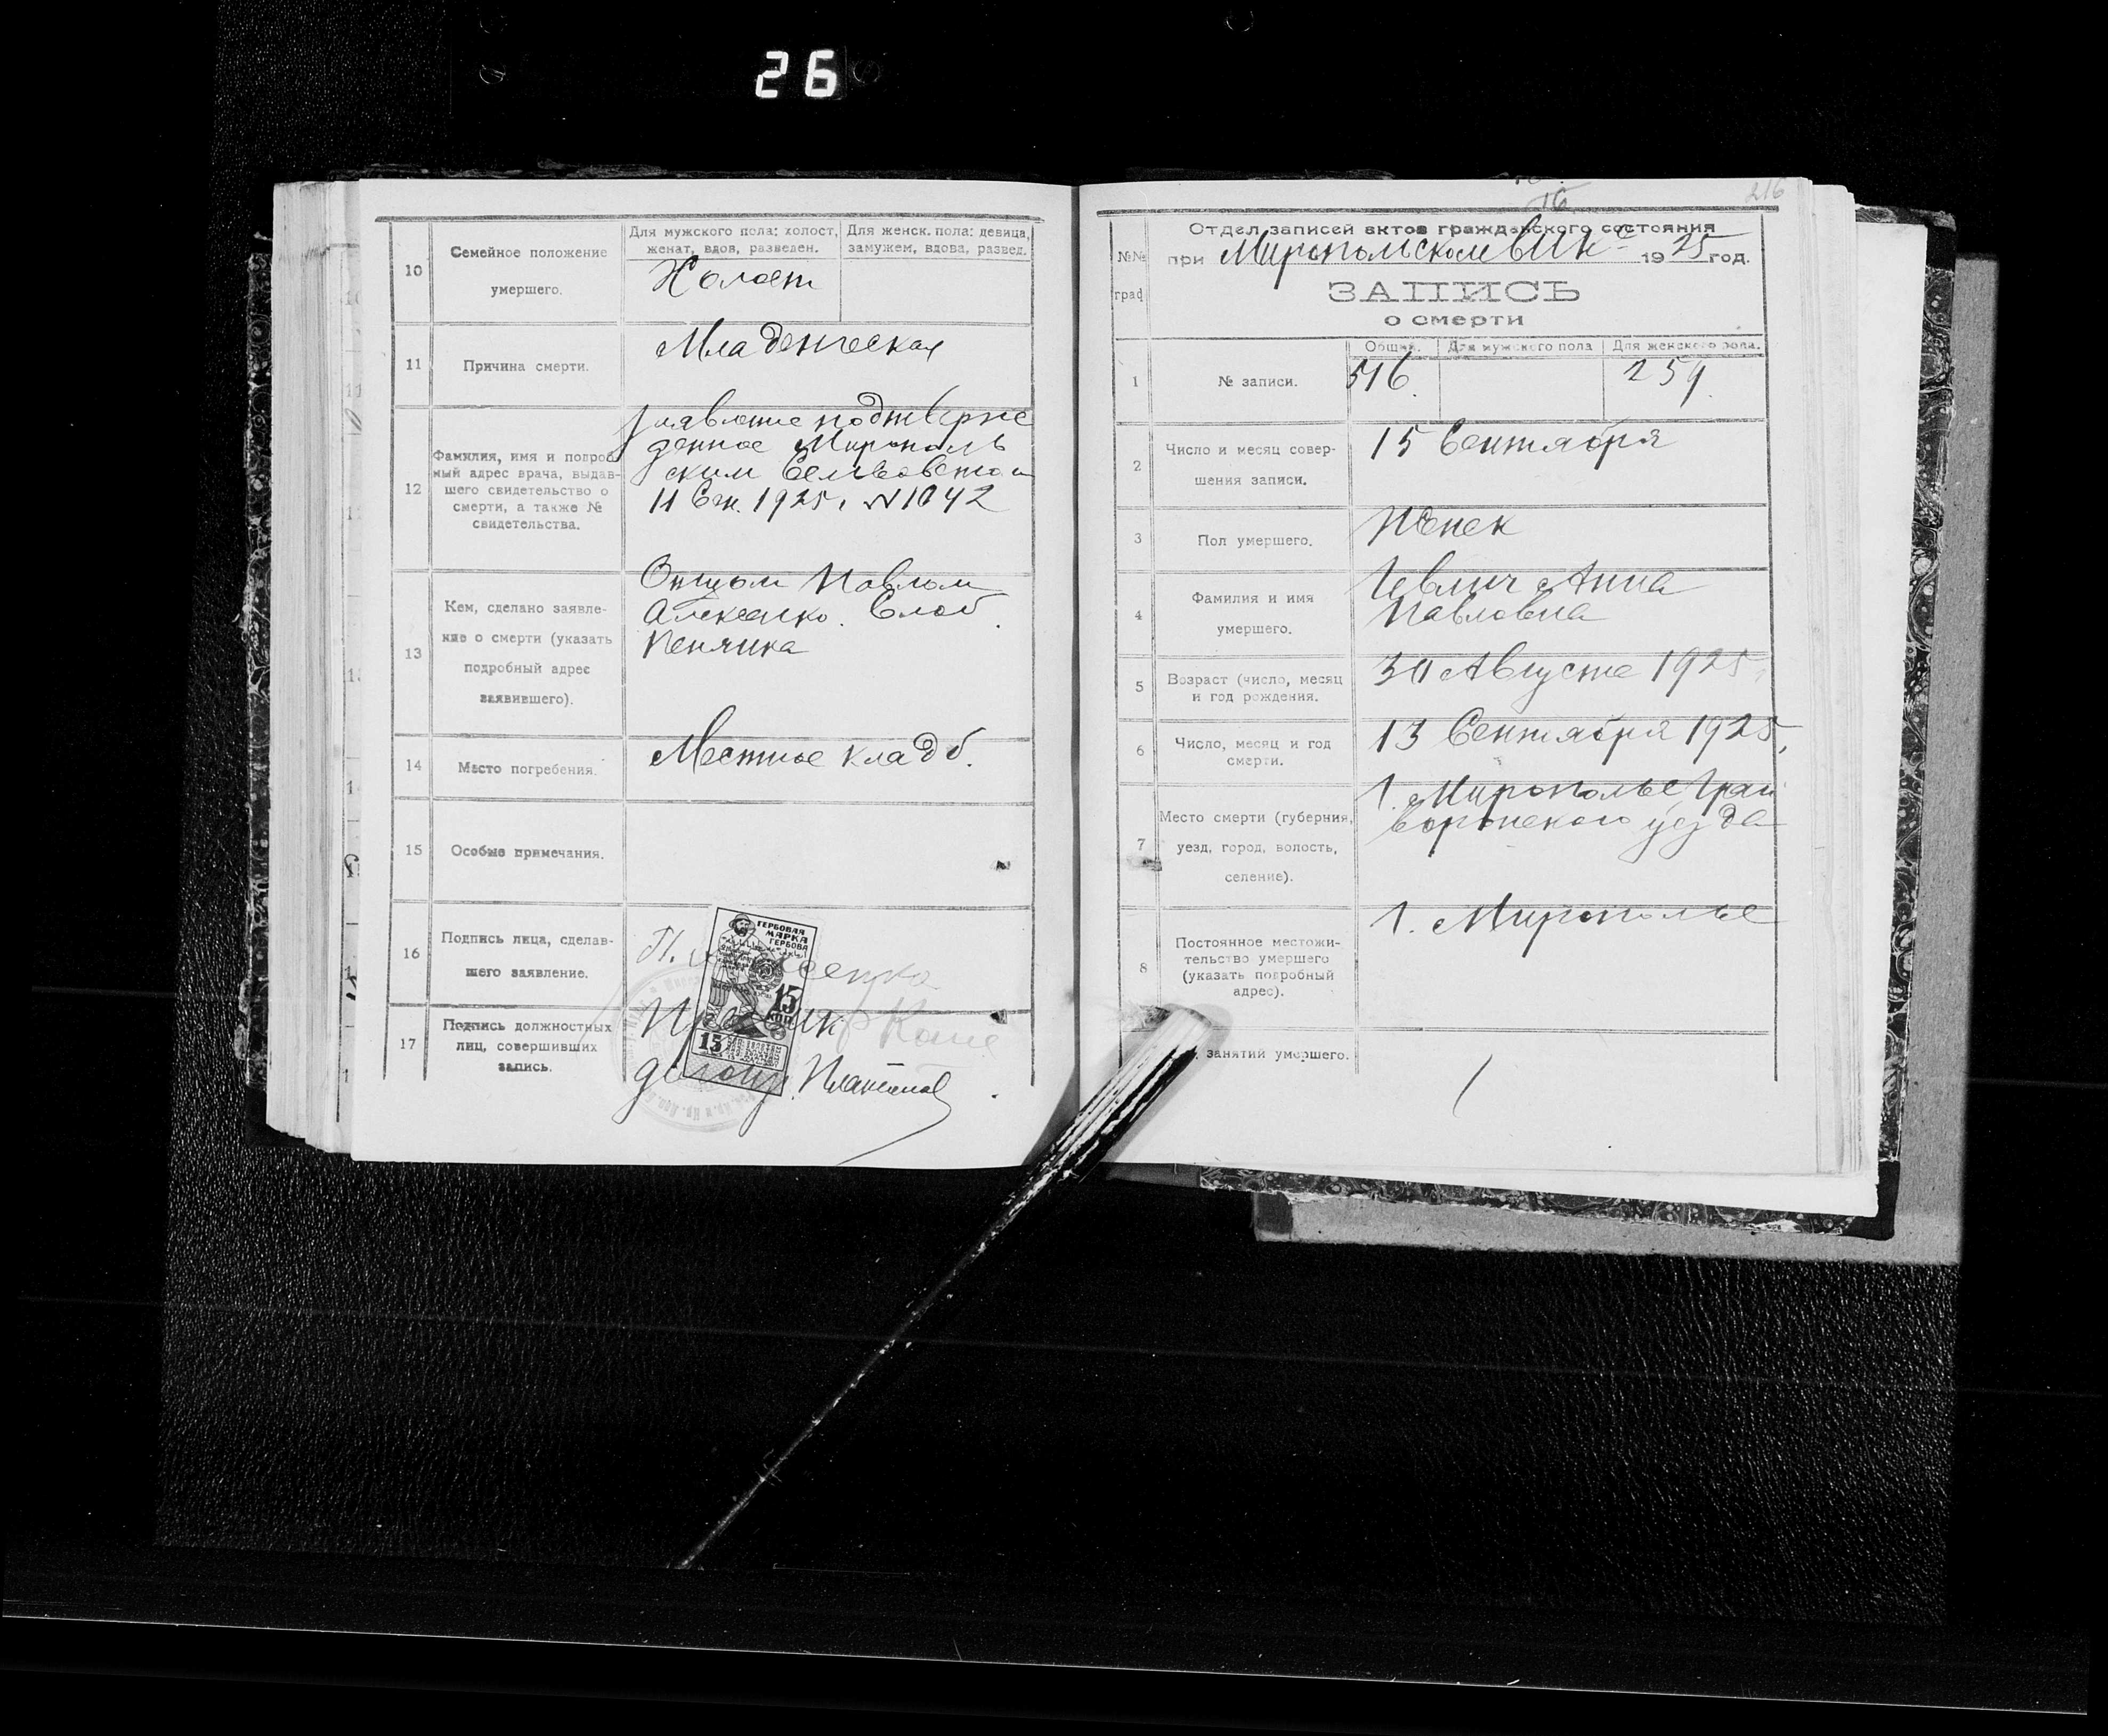 26
10
Семейное положение
умершего.
Для мужского пола: холост,
женат, вдов, разведен.
Для женск. пола: девица,
замужем, вдова, развед.
Холост
11
Причина смерти.
Младенческая
12
Фамилия, имя и подроб-
ный адрес врача, выдав-
шего свидетельство о
смерти, а также №
свидетельства.
заявление подтверж
денное Мирополь
ским сельсоветом
11 Сен. 1925 г. №1042
13
Кем, сделано заявле-
ние о смерти (указать
подробный адрес
заявившего).
Отцом Павлом
Алексенко. Слоб.
Пенянка
14
Место погребения.
Местное кладб.
15
Особые примечания.
16
Подпись лица, сделав-
шего заявление.
ГЕРБОВАЯ
МАРКА
ГЕРБОВА
15
КОП
15
17
Подпись должностных
лиц, совершивших
запись.
216
№№
граф
Отдел записей актов гражданского состояния
при Миропольском ВИКе 1925 год.
ЗАПИСЬ
о смерти
1
№ записи.
Общий.
Для мужского пола
Для женского пола.
516.
259.
2
Число и месяц совер-
шения записи.
15 Сентября
3
Пол умершего.
Женск
4
Фамилия и имя
умершего.
Иевлич Анна
Павловна
5
Возраст (число, месяц
и год рождения.
30 Августа 1925 г.
6
Число, месяц и год
смерти.
13 Сентября 1925 г.
7
Место смерти (губерния,
уезд, город, волость,
селение).
г. Мирополье Грай
воронского уезда
8
Постоянное местожи-
тельство умершего
(указать подробный
адрес).
г. Мирополье
занятий умершего.